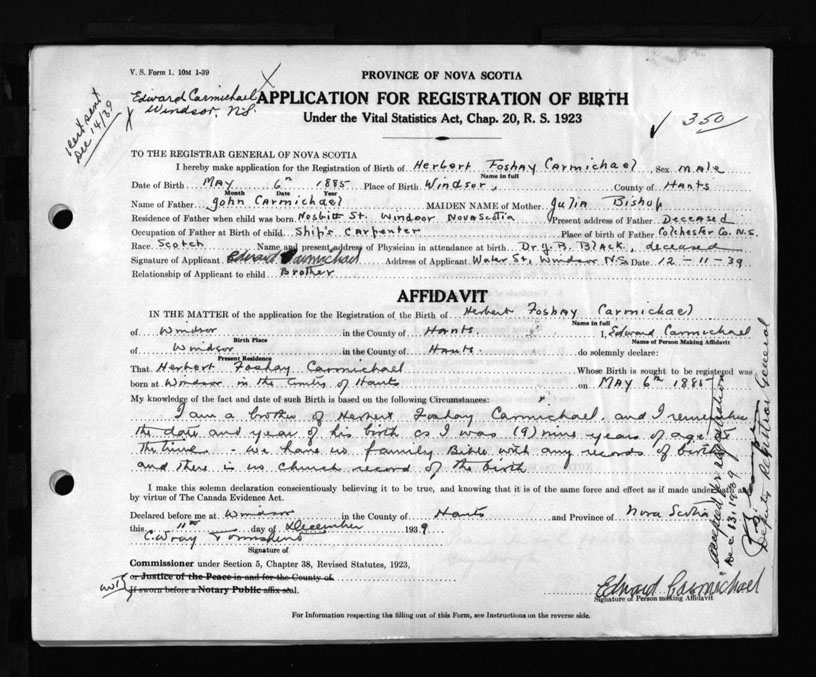 V. S. Form 1. 10M 1-39
PROVINCE OF NOVA SCOTIA
Edward Carmichael
Windsor, N.S.
X
X
APPLICATION FOR REGISTRATION OF BIRTH
Under the Vital Statistics Act, Chap. 20, R. S. 1923
✓ 3.50
Cert sent
Dec 14/39
TO THE REGISTRAR GENERAL OF NOVA SCOTIA
I hereby make application for the Registration of Birth of Herbert Foshay Carmichael Sex Male
Name in full
Date of Birth MAY 6th 1885 Place of Birth Windsor, County of Hants
Month Date Year
Name of Father John Carmichael MAIDEN NAME of Mother Julia Bishop
Residence of Father when child was born Nesbitt St. Windsor Nova Scotia Present address of Father Deceased
Occupation of Father at Birth of child Ship's Carpenter Place of birth of Father Colchester Co. N.S.
Race Scotch Name and present address of Physician in attendance at birth Dr. J. B. Black, deceased
Signature of Applicant Edward Carmichael Address of Applicant Water St, Windsor N.S. Date 12-11-39
Relationship of Applicant to child Brother
AFFIDAVIT
IN THE MATTER of the application for the Registration of the Birth of Herbert Foshay Carmichael
Name in full
of Windsor in the County of Hants. I, Edward Carmichael
Birth Place Name of Person Making Affidavit
of Windsor in the County of Hants. do solemnly declare:
Present Residence
That Herbert Foshay Carmichael Whose Birth is sought to be registered was
born at Windsor in the County of Hants on MAY 6th 1885
My knowledge of the fact and date of such Birth is based on the following Circumstances:
I am a brother of Herbert Foshay Carmichael. and I remember
the date and year of his birth as I was (9) nine years of age at
the time - We have no family Bible with any records of birth
and there is no Church record of the birth
I make this solemn declaration conscientiously believing it to be true, and knowing that it is of the same force and effect as if made under oath and
by virtue of The Canada Evidence Act.
Declared before me at Windsor in the County of Hants and Province of Nova Scotia
this 11th day of December 1939
C. Wray Townshend
Signature of
Commissioner under Section 5, Chapter 38, Revised Statutes, 1923,
or Justice of the Peace in and for the County of
If sworn before a Notary Public affix seal.
Edward Carmichael
Signature of Person making Affidavit
For Information respecting the filling out of this Form, see Instructions on the reverse side.
Accepted for registration
Dec 13, 1939
Deputy Registrar General